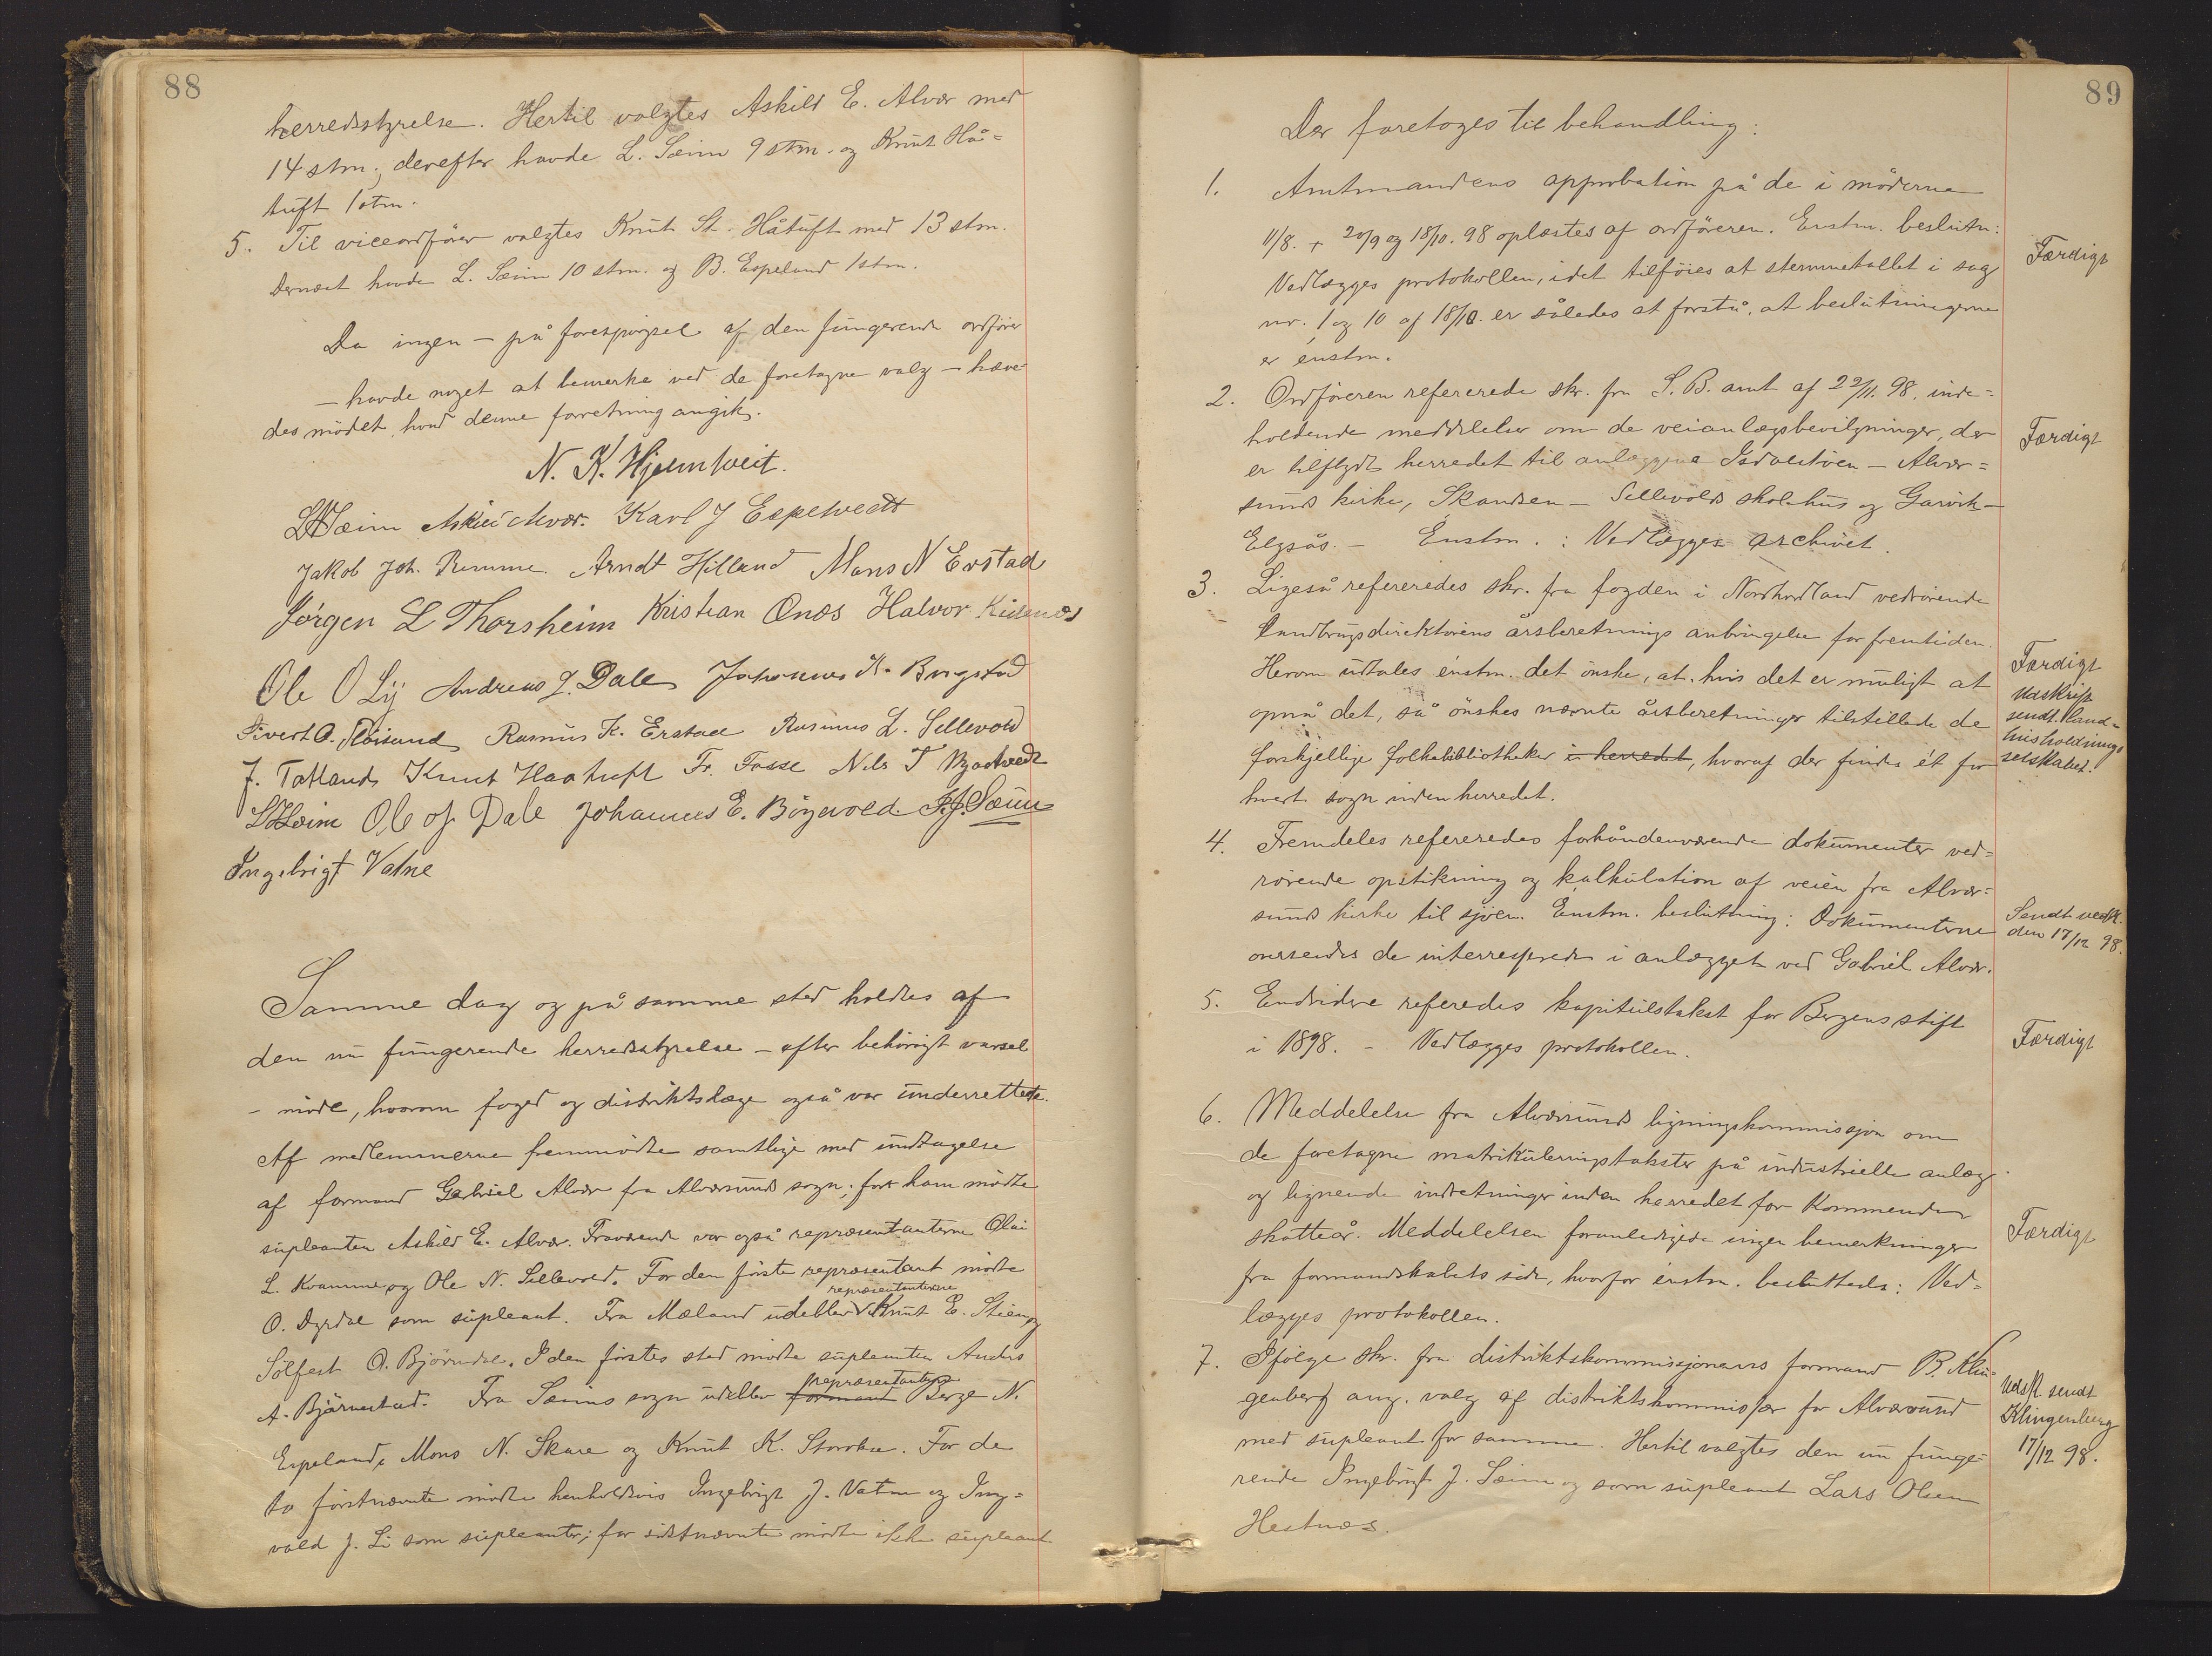 88
herredsstyrelse. Hertil valgtes Askild E. Alvær med
14 stm.; derefter havde L. Sæim 9 stm. og Knut Hå=
tuft 1 stm.
5. Til viceordfører valgtes Knut St. Håtuft med 13 stm.
Dernæst havde L. Sæim 10 stm. og B. Espeland 1 stm.
Da ingen – på forespørgsel af den fungerende ordfører
– havde noget at bemerke ved de foretagne valg – hæve-
des mødet, hvad denne forretning angik.
N. K. Hjelmtveit.
L Sæim Askild Alvær. Karl J Espetvedt
Jakob Joh. Remme. Arndt Hilland Mons N Erstad
Jørgen L Thorsheim Kristian Onæs Halvor
Ole O Lij Andreas J. Dale Johannes K. Brygstad
Sivert O. Rasmus K. Erstad Rasmus L. Sellevold
J. Tofland Knut Haatuft Fr. Fosse Nils T
Ole O. Dale Johannes E. Böyevold I. J. Sæim
Ingebrigt Vatne
Samme dag og på samme sted holdtes af
den nu fungerende herredsstyrelse – efter behörigt varsel
– möde, hvorom foged og distriktslæge også var underrettede.
Af medlemmerne fremmödte samtlige med undtagelse
af formand Gabriel Alvær fra Alværsunds sogn; for ham mödte
supleanten Askild E. Alvær. Fraværende var også repræsentanterne Olai
L. Kvamme og Ole N. Sellevold. For den förste repræsentant mödte
O. Dyrdal som supleant. Fra Mæland udeblev repræsentanterne Knut E. Stien og
Sölfest O. Björndal. I den förstes sted mödte supleanten Anders
A. Bjärnestad. Fra Sæims sogn udeblev formand repræsentanterne Berge N.
Espeland, Mons N. Skare og Knut K. Storoksen. For de
to förstnævnte mödte henholdsvis Ingebrigt J. Vatne og Ing=
vald J. Li som supleanter; for sidstnævnte mödte ikke supleant
89
Der foretoges til behandling:
1. Amtmandens approbation på de i möderne
11/8. + 20/9 og 18/10. 98 oplæstes af ordföreren. Enstm. beslutn:
Vedlægges protokollen, idet tilföies at stemmetallet i sag
nr. 1 og 10 af 18/10. er således at forstå, at beslutningerne
er énstm.
Færdigt
2. Ordföreren refererede skr. fra S. B. amt af 22/11. 98. inde=
holdende meddelelser om de veianlægsbevilgninger, der
er tilflydt herredet til anlæggene Isdalstöen – Alvær=
sunds kirke, Skandsen – Sellevolds skolehus og Garvik –
Elgsås. – Enstm.: Vedlægges archivet.
Færdigt
3. Ligeså refereredes skr. fra fogden i Nordhordland vedrörende
Landbrugsdirektörens årsberetnings anbringelse for fremtiden.
Herom udtales énstm. det önske, at, hvis det er muligt at
opnå det, så önskes nævnte årsberetninger tilstillede de
forskjellige folkebibliotheker i herredet, hvoraf der findes ét for
hvert sogn inden herredet.
Færdigt
Udskrift
sendt. land=
husholdnings
selskabet.
4. Fremdeles refereredes forhåndenværende dokumenter ved=
rörende opstikning og kalkulation af veien fra Alvær=
sunds kirke til sjöen. Enstm. beslutning: Dokumenterne
oversendes de interresserede i anlægget ved Gabriel Alvær.
Sendt vedk.
den 17/12 98.
5. Endvidere referedes kapitulstakst for Bergens stift
i 1898. – Vedlægges protokollen.
Færdigt
6. Meddelelse fra Alværsunds ligningskommissjon om
de foretagne matrikuleringstakster på industrielle anlæg
og lignende indretninger inden herredet for kommende
skatteår. Meddelelsen foranledigede ingen bemerkninger
fra formandskabets side, hvorfor énstm. besluttedes: Ved=
lægges protokollen.
Færdigt
7. Ifölge skr. fra distriktskommissjonens formand B. Klin=
genberg ang. valg af distriktskommissær for Alværsund
med supleant for samme. Hertil valgtes den nu funge=
rende Ingebrigt J. Sæim og som supleant Lars Olsen
Hestnæs.
Udsk. sendt
Klingenberg
17/12 98.